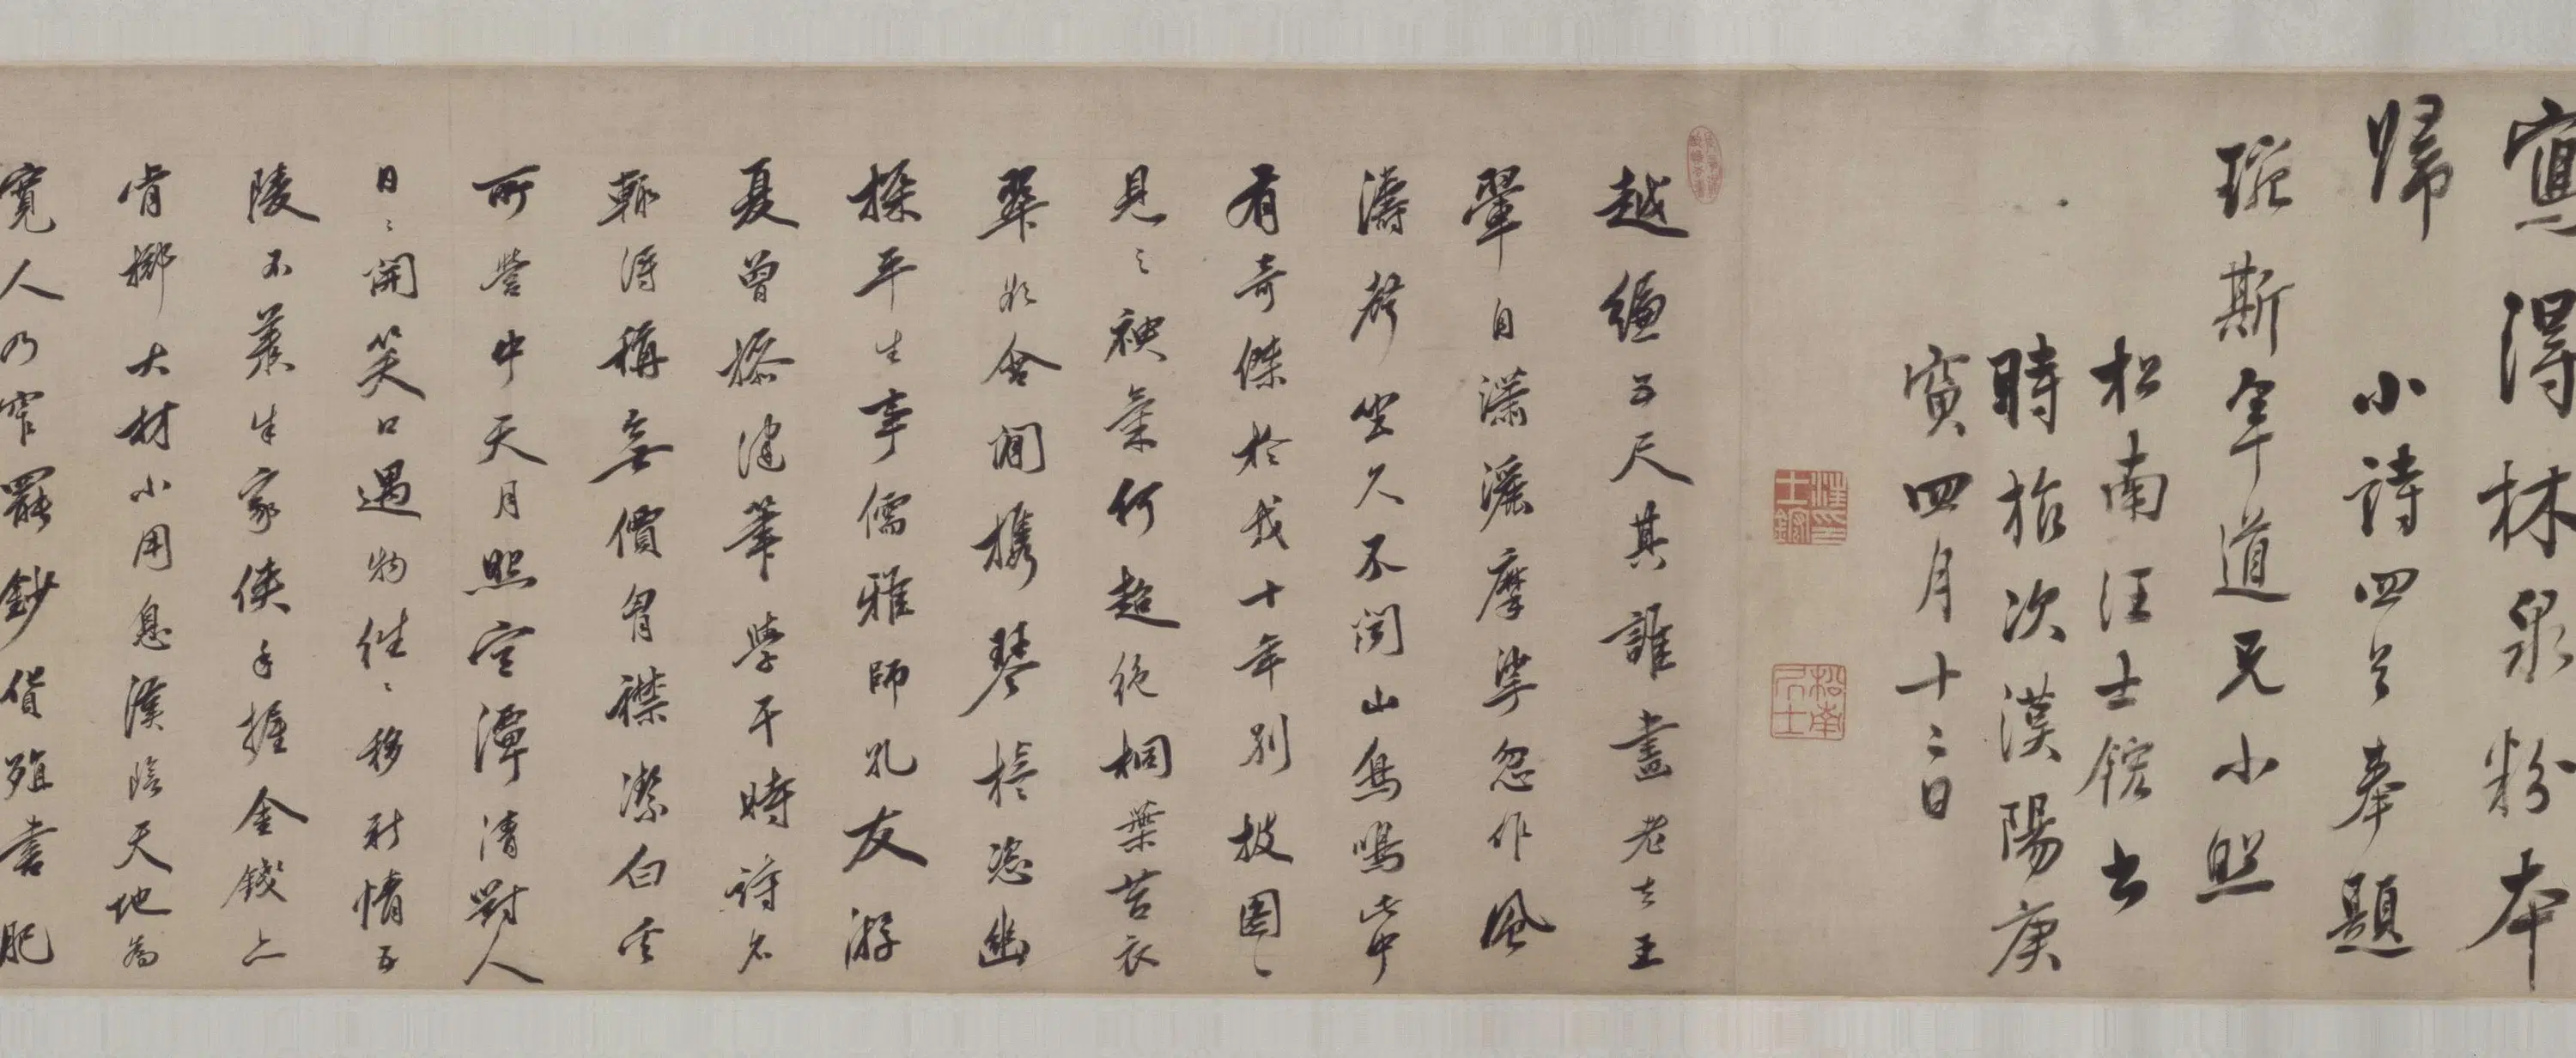 寫得林泉粉本
歸
小詩四首奉題
琅斯年道兄小照
松南汪士鋐書
時於次漢陽庚
寅四月十二日
汪士鋐印
松南居士
越縑五尺其誰畫老去王
翬自瀟灑摩挲忽作風
濤聲坐久不聞山鳥鳴此中
有奇傑於我十年別披圖
見之神氣何超絕桐葉苔衣
翠欲含閒攜琴恣幽
探平生事儒雅師孔友游
夏曾搖健筆學干時詩名
輒得稱無價胸襟潔白無
所營中天月照空潭清對人
日日開笑口遇物往往移新情五
陵不羨朱家俠手握金錢亦
肯擲大材小用息漢陰天地為
寬人乃窄罷鈔貨殖書肥